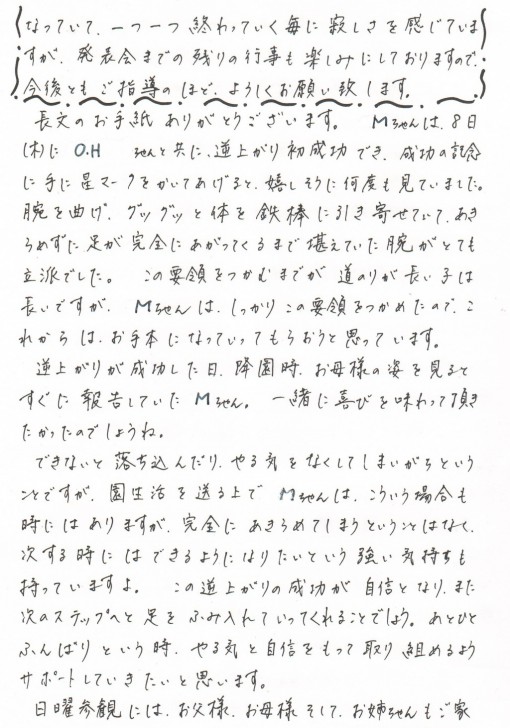 なっていて、一つ一つ終わっていく毎に寂しさを感じていま
すが、発表会までの残りの行事も楽しみにしておりますので、
今後ともご指導のほど、よろしくお願い致します。
長文のお手紙ありがとうございます。 Mちゃんは、8日
(木)に O.H ちゃんと共に、逆上がり初成功でき、成功の記念
に手に星マークをかいてあげると、嬉しそうに何度も見ていました。
腕を曲げ、グッグッと体を鉄棒に引き寄せていて、あき
らめずに足が完全にあがってくるまで堪えていた腕がとても
立派でした。 この要領をつかむまでが道のりが長い子は
長いですが、Mちゃんは、しっかりこの要領をつかめたので、こ
れからは、お手本になっていってもらおうと思っています。
逆上がりが成功した日、降園時、お母様の姿を見ると
すぐに報告していたMちゃん。一緒に喜びを味わって頂き
たかったのでしょうね。
できないと落ち込んだり、やる気をなくしてしまいがちという
ことですが、園生活を送る上でMちゃんは、こういう場合も
時にはありますが、完全にあきらめてしまうということはなく、
次する時にはできるようになりたいという強い気持ちも
持っていますよ。 この逆上がりの成功が自信となり、また
次のステップへと足をふみ入れていってくれることでしょう。あとひと
ふんばりという時、やる気と自信をもって取り組めるよう
サポートしていきたいと思います。
日曜参観には、お父様、お母様そして、お姉ちゃんもご家